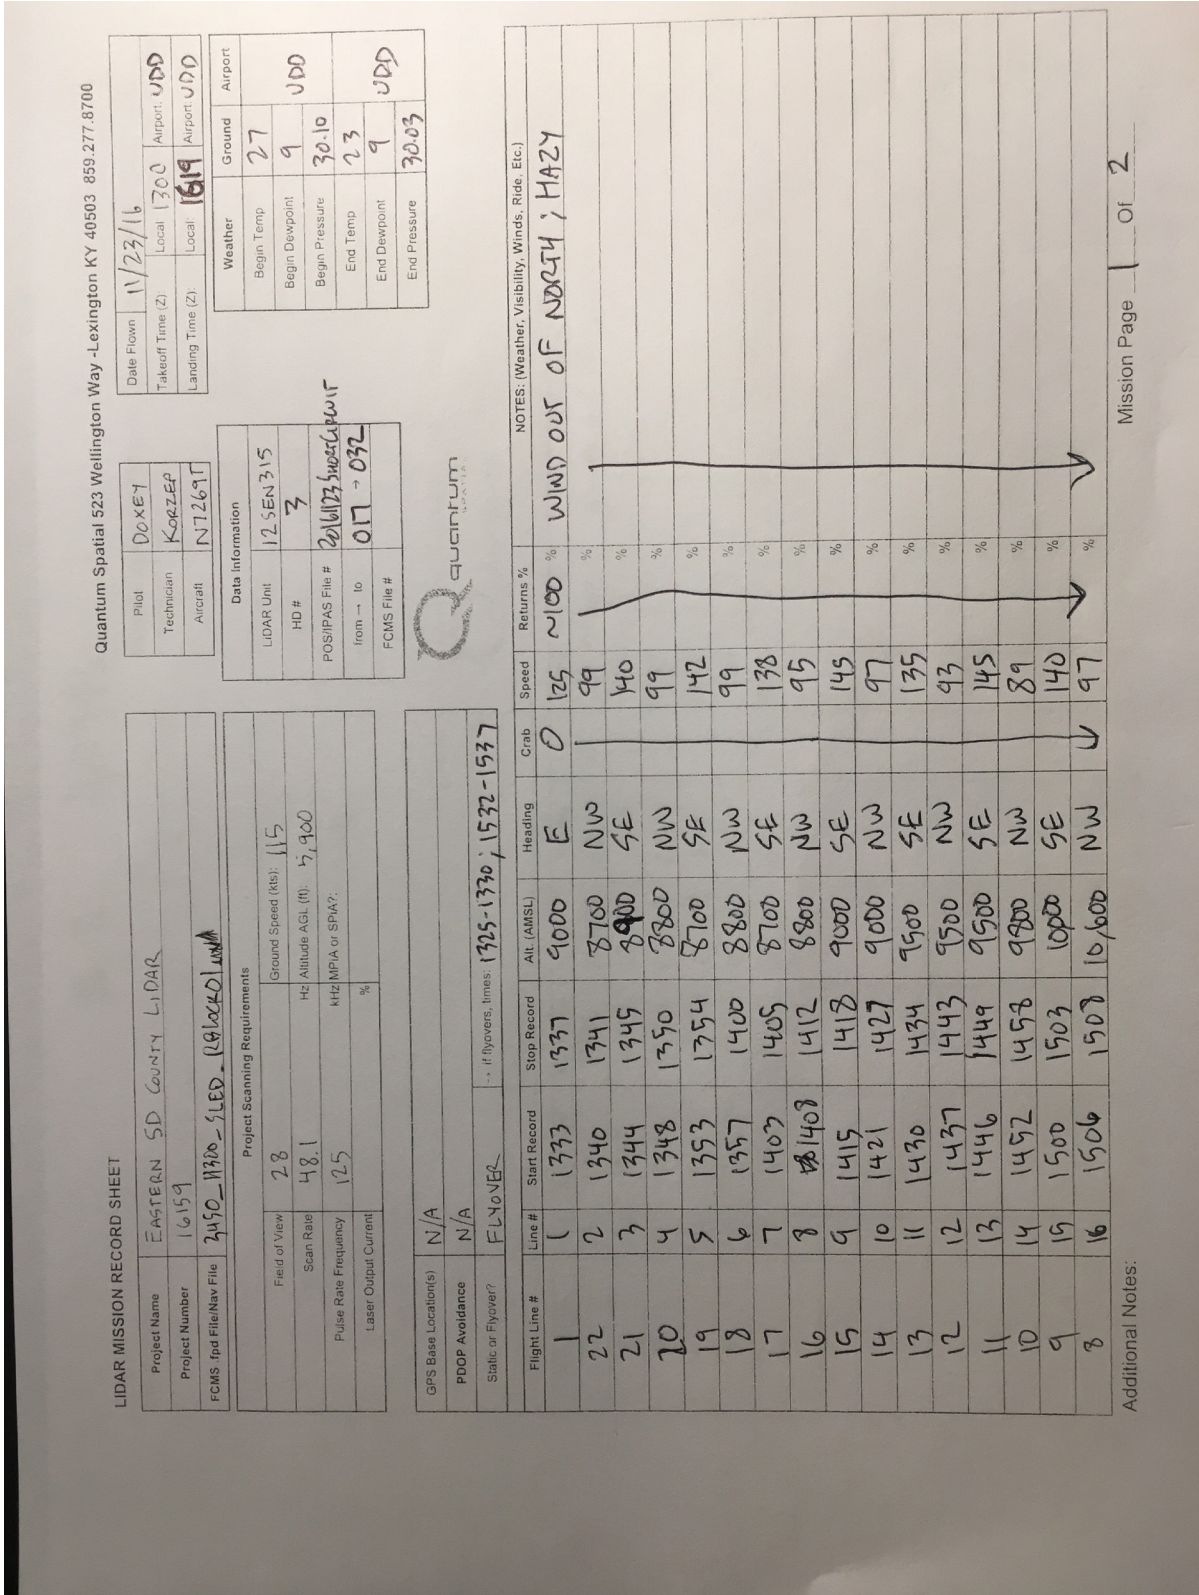 Quantum Spatial 523 Wellington Way -Lexington KY 40503 859.277.8700
LIDAR MISSION RECORD SHEET
Project Name EASTERN SD COUNTY LIDAR
Project Number 16159
FCMS .fpd File/Nav File
Pilot DOXEY
Technician KORZEP
Aircraft N7269T
Date Flown 11/23/16
Takeoff Time (Z) Local 1300 Airport: UDD
Landing Time (Z): Local: 1619 Airport UDD
Project Scanning Requirements
Field of View 28 Ground Speed (kts): 115
Scan Rate 48.1 Hz Altitude AGL (ft): 5,900
Pulse Rate Frequency 125 kHz MPiA or SPiA?:
Laser Output Current %
Data Information
LiDAR Unit 12SEN315
HD # 3
POS/IPAS File #
from → to 017 → 032
FCMS File #
Weather Ground Airport
Begin Temp 27
Begin Dewpoint 9 UDD
Begin Pressure 30.10
End Temp 23
End Dewpoint 9 UDD
End Pressure 30.03
GPS Base Location(s) N/A
PDOP Avoidance N/A
Static or Flyover? FLYOVER if flyovers, times: 1325-1330; 1532-1537
quantum
SPATIAL
Flight Line # Line # Start Record Stop Record Alt. (AMSL) Heading Crab Speed Returns % NOTES: (Weather, Visibility, Winds, Ride, Etc.)
1 1 1333 1337 9000 E 0 125 ~100 % WIND OUT OF NORTH; HAZY
22 2 1340 1341 8700 NW 99 %
21 3 1344 1345 8900 SE 140 %
20 4 1348 1350 8800 NW 99 %
19 5 1353 1354 8700 SE 142 %
18 6 1357 1400 8800 NW 99 %
17 7 1403 1405 8700 SE 138 %
16 8 1408 1412 8800 NW 95 %
15 9 1415 1418 9000 SE 145 %
14 10 1421 1427 9000 NW 97 %
13 11 1430 1434 9500 SE 135 %
12 12 1437 1443 9500 NW 93 %
11 13 1446 1449 9500 SE 145 %
10 14 1452 1458 9800 NW 89 %
9 15 1500 1503 10,000 SE 140 %
8 16 1506 1508 10,600 NW 97 %
Additional Notes:
Mission Page 1 Of 2